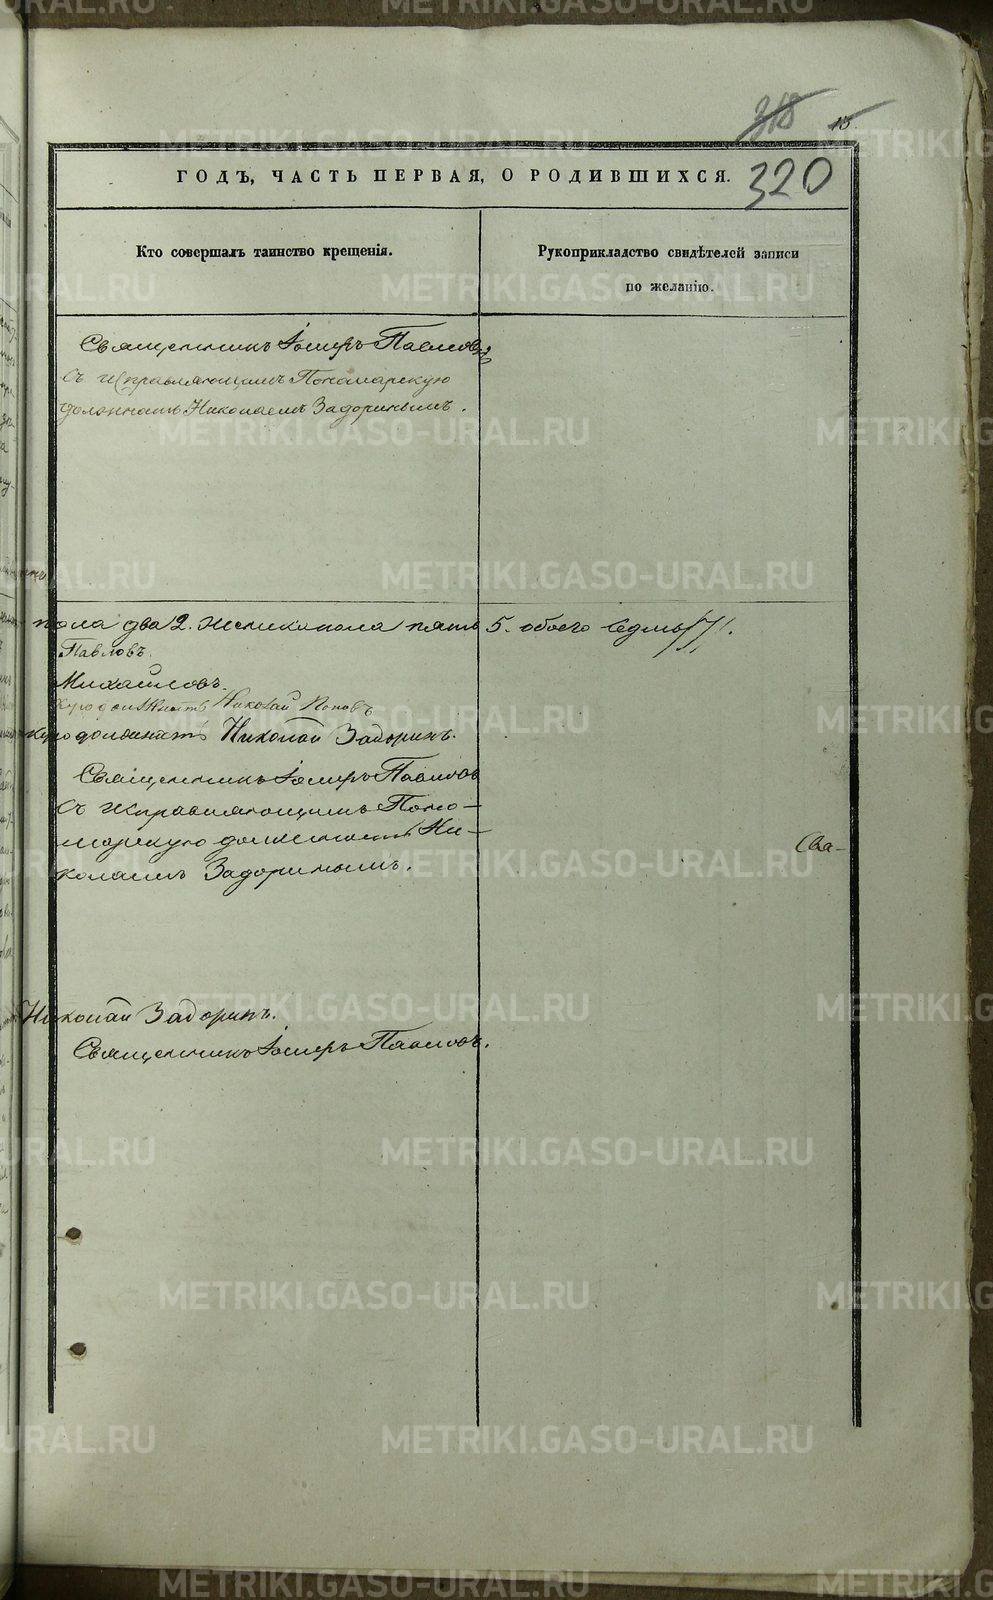 318 15.
320
ГОДЪ, ЧАСТЬ ПЕРВАЯ, О РОДИВШИХСЯ.
Кто совершалъ таинство крещенія.
Рукоприкладство свидѣтелей записи
по желанію.
Священникъ Павловъ
съ исправляющимъ Пономарскую
должность Николаемъ Задоринымъ.
пола два 2. Женска пола пять 5. обоего седмь /7/.
Павловъ.
Михайловъ.
должность Николай Поповъ
должность Николай Задоринъ.
Священникъ Павловъ
съ исправляющимъ Поно-
марскую должность Ни-
колаемъ Задоринымъ.
Сва-
Николай Задоринъ.
Священникъ Павловъ.
METRIKI.GASO-URAL.RU